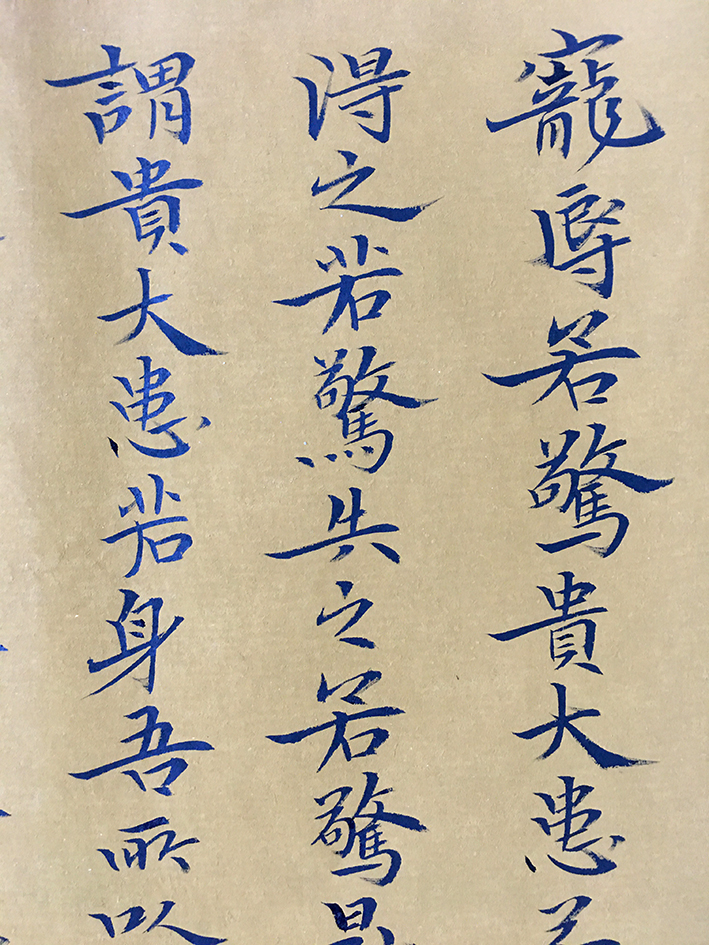 寵辱若驚貴大患若
得之若驚失之若驚是
謂貴大患若身吾所以